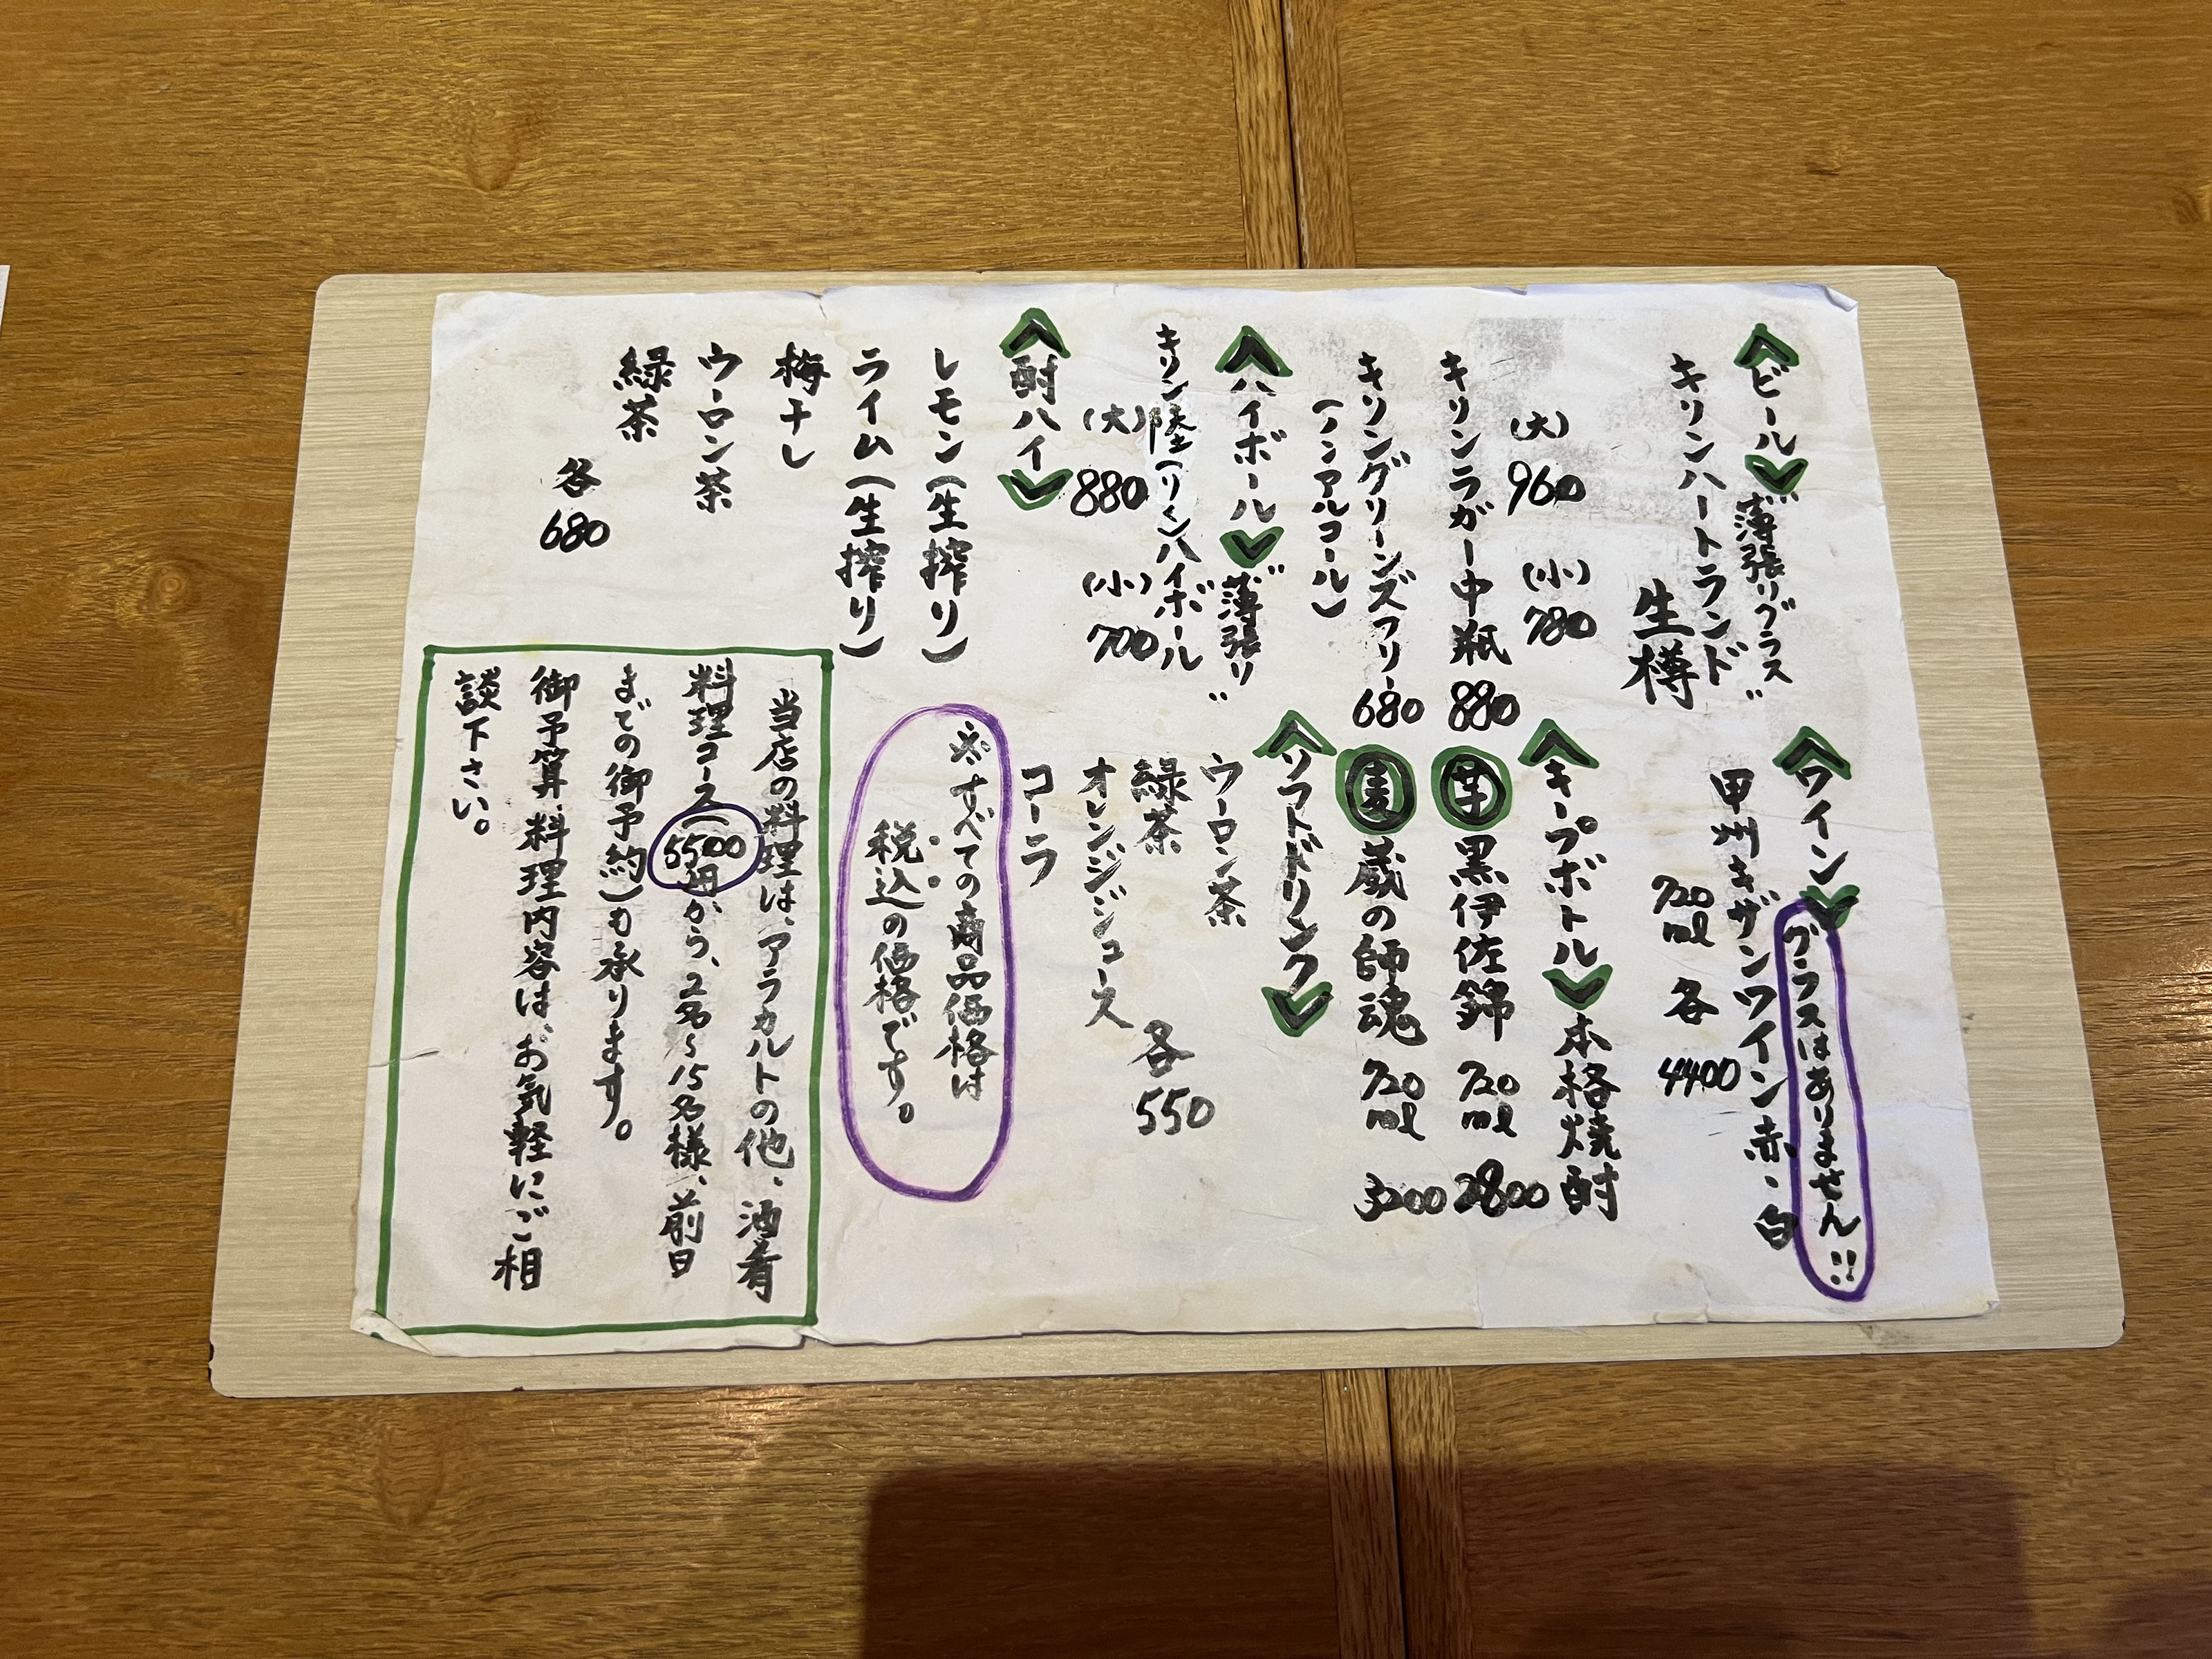 〈ビール〉"薄張りグラス"
キリンハートランド
生樽
(大) 960 (小) 780
キリンラガー中瓶 880
キリングリーンズフリー 680
(ノンアルコール)
〈ハイボール〉"薄張り"
キリン陸(リク)ハイボール
(大) 880 (小) 700
〈酎ハイ〉
レモン(生搾り)
ライム(生搾り)
梅干し
ウーロン茶
緑茶
各 680
〈ワイン〉グラスはありません!!
甲州キザンワイン赤・白
720ml 各 4400
〈キープボトル〉本格焼酎
芋 黒伊佐錦 720ml 2800
麦 蔵の師魂 720ml 3200
〈ソフトドリンク〉
ウーロン茶
緑茶
オレンジジュース
コーラ
各 550
※すべての商品価格は
税込の価格です。
当店の料理は、アラカルトの他、酒肴
料理コース(5500円から、2名〜15名様、前日
までの御予約)も承ります。
御予算、料理内容はお気軽にご相
談下さい。